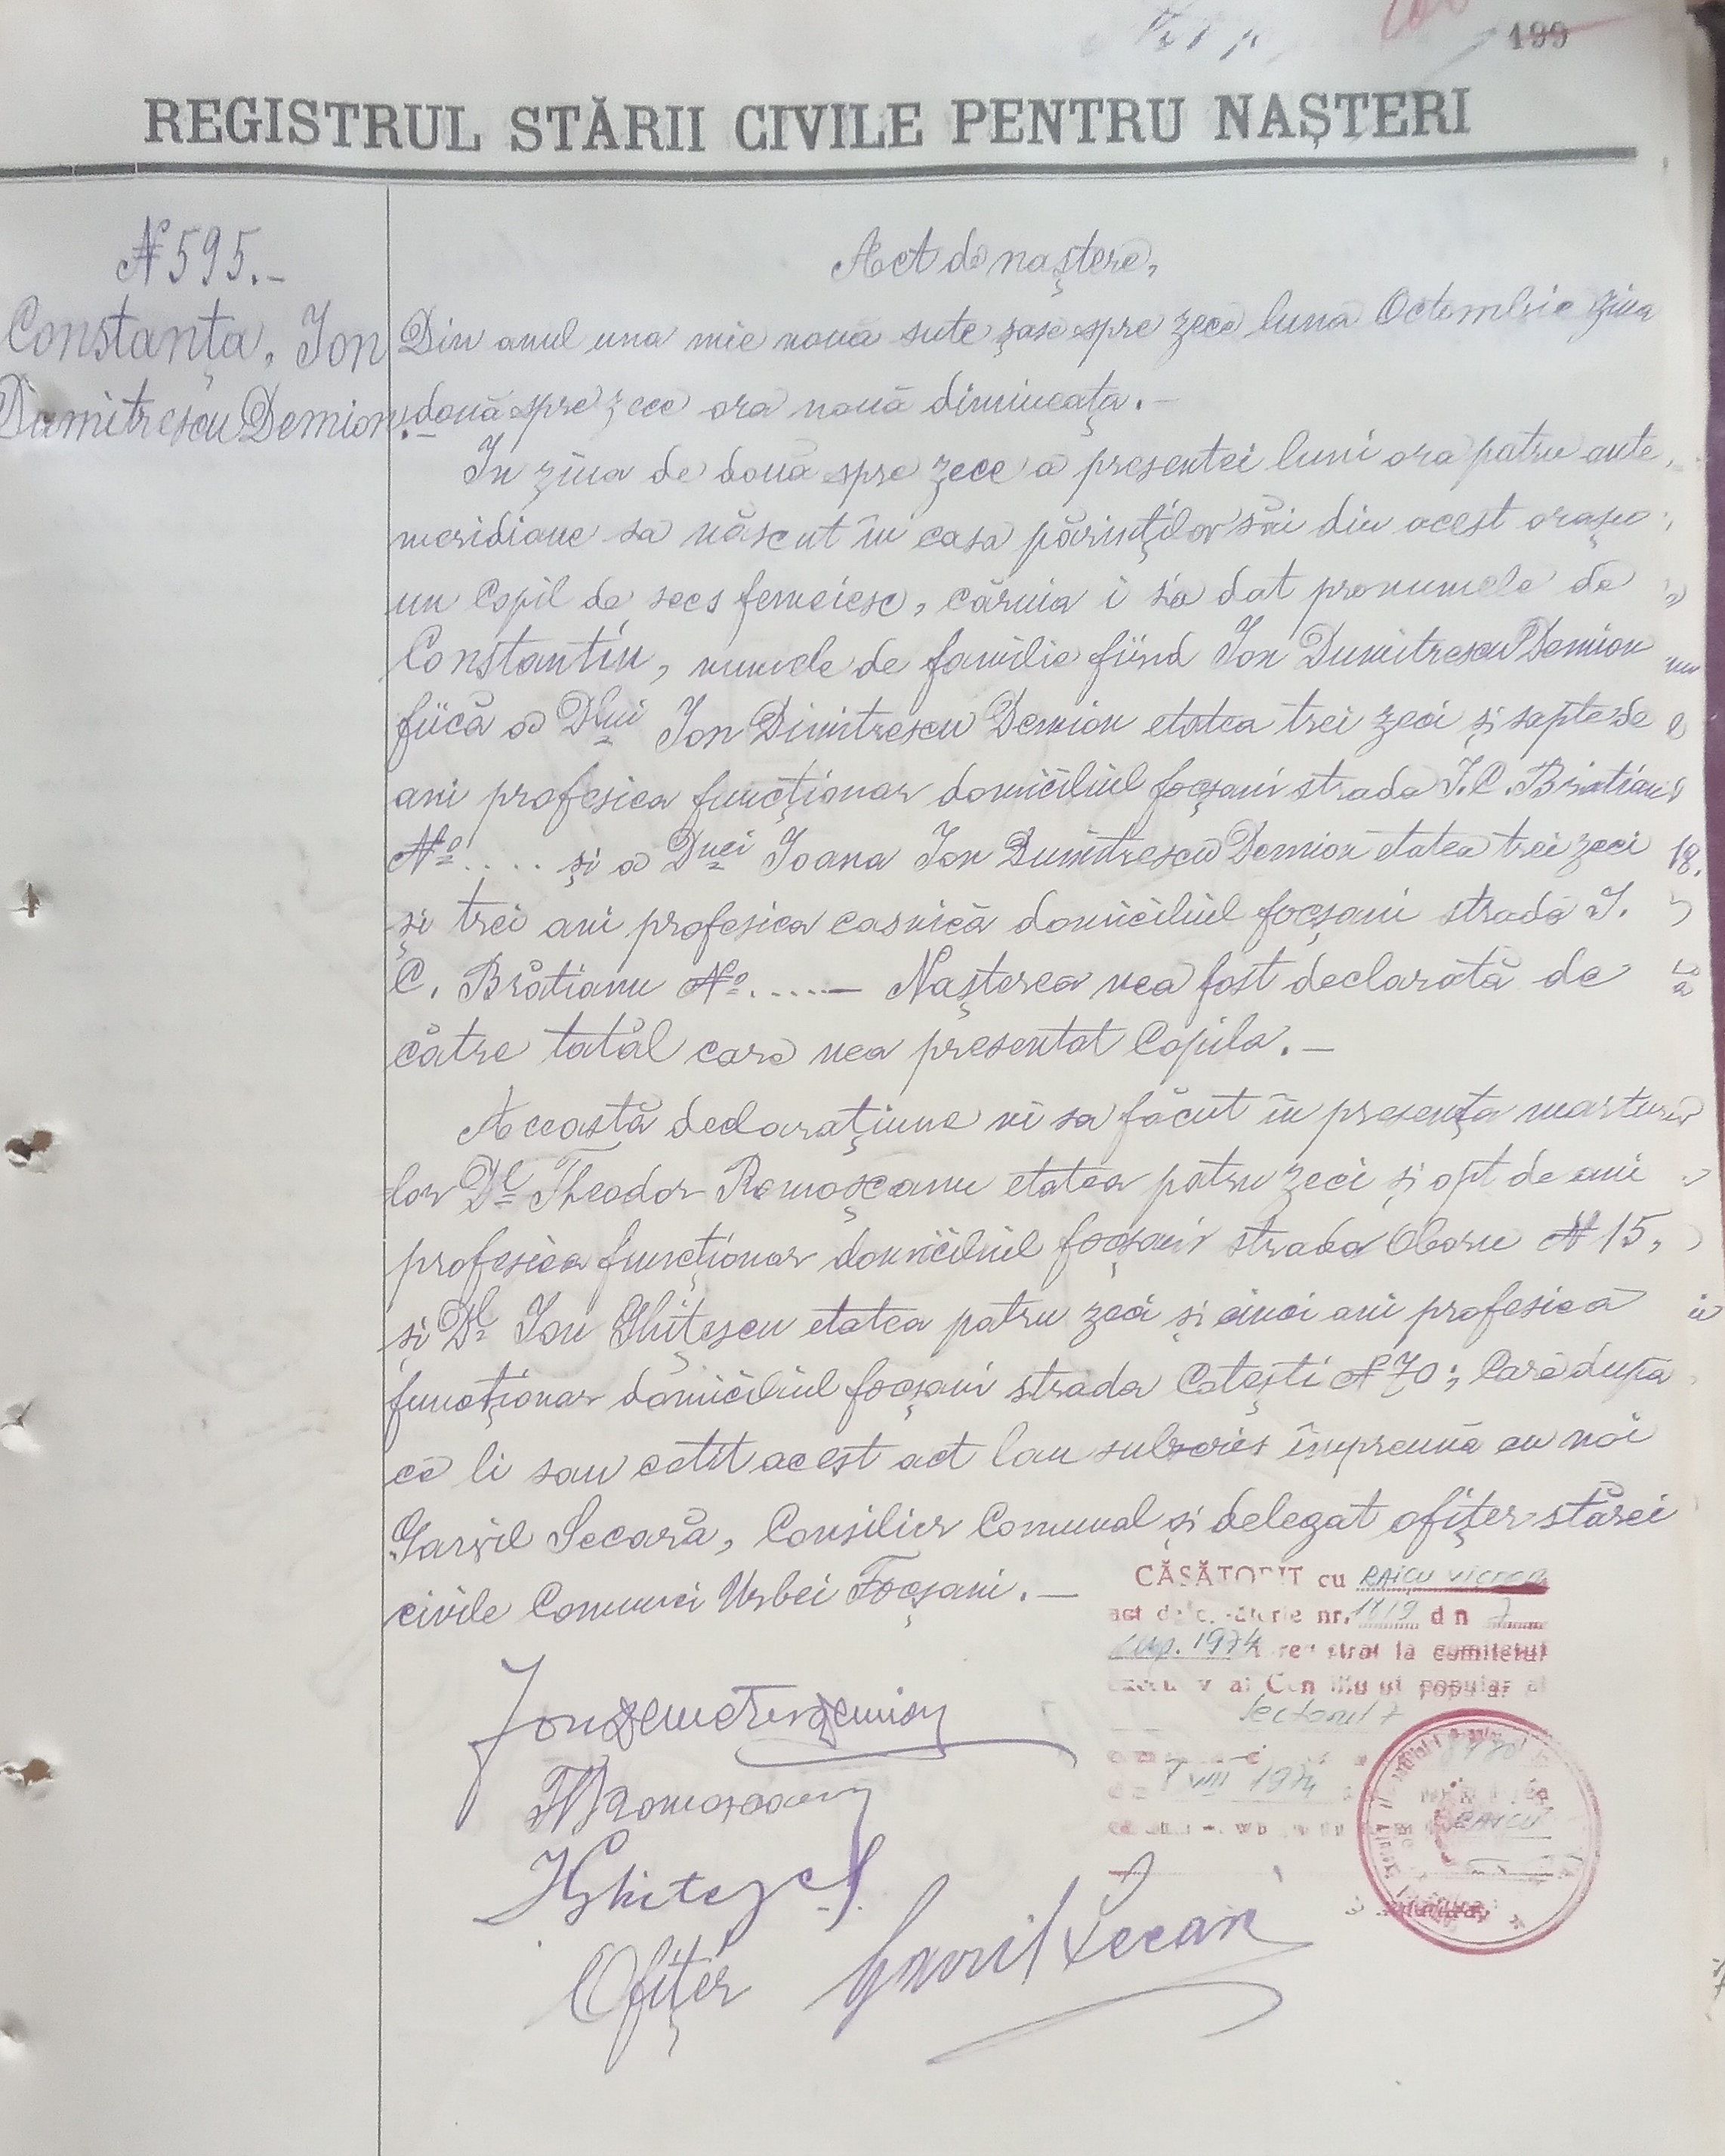 199
REGISTRUL STĂRII CIVILE PENTRU NAȘTERI
№ 595.-
Constanța, Ion
Dumitrescu Demion.
Act de naștere,
Din anul una mie nouă sute șase spre zece luna Octombrie ziua
două spre zece ora nouă dimineața.-
In ziua de două spre zece a presentei luni ora patru ante
meridiane sa născut în casa părinților săi din acest orașu
un Copil de secs femeiesc, căruia i s'a dat pronumele de
Constantin, numele de familie fiind Ion Dumitrescu Demion
fiică a Dlui Ion Dimitrescu Demion etatea trei zeci și șapte de
ani profesiea funcționar domiciliul focșani strada I. C. Brătianu
No..... și a Dnei Ioana Ion Dumitrescu Demion etatea trei zeci
și trei ani profesiea casnică domiciliul focșani strada I.
C. Brătianu No......— Nașterea nea fost declarată de
către tatăl care nea presentat Copila.—
Această declarațiune ni sa făcut în presența marturi
lor Dl Theodor Romoșcanu etatea patru zeci și opt de ani
profesiea funcționar domiciliul focșani strada Oboru № 15,
și Dl Ion Ghițescu etatea patru zeci și cinci ani profesiea
funcționar domiciliul focșani strada Cotești № 70; Care după
ce li sau cetit acest act lau subscris împreună cu noi
Gavril Secară, Consilier Comunal și delegat ofițer stărei
civile Comunei Urbei Focșani.—
CĂSĂTORIT cu RAICU
act de căsătorie nr. 1119 din 7
1974 înregistrat la comitetul
executiv al Consiliului popular al
Sectorul 7
VIII 1974
RAICU
Ofițer Gavril Secară